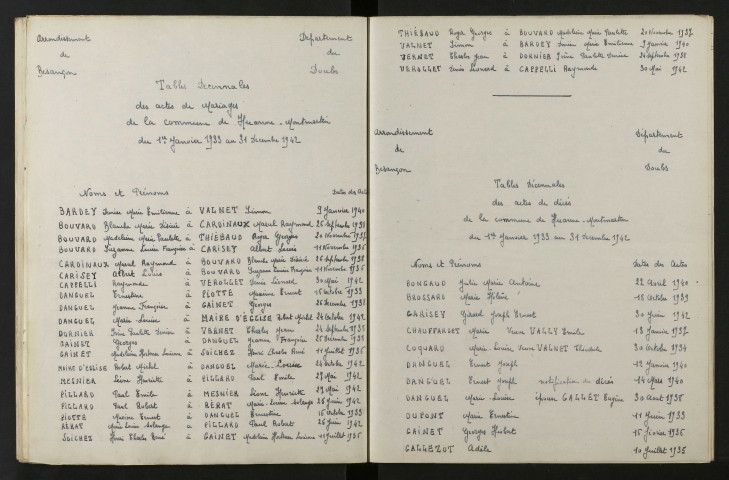 Arrondissement
de
Besançon
Département
du
Doubs
Tables Décennales
des actes de Mariages
de la commune de Huanne-Montmartin
du 1er Janvier 1933 au 31 Décembre 1942
Noms et Prénoms Dates des Actes
BARDEY Marie Emilienne à VALNET Simon 9 Janvier 1940
BOUVARD Blanche Marie Désirée à CARDINAUX Marcel Raymond 26 Septembre 1938
BOUVARD Madeleine Marie Paulette à THIÉBAUD Roger Georges 20 Novembre 1937
BOUVARD Suzanne Lucine Françoise à CARISEY Albert Louis 11 Novembre 1936
CARDINAUX Marcel Raymond à BOUVARD Blanche Marie Désirée 26 Septembre 1938
CARISEY Albert Louis à BOUVARD Suzanne Lucine Françoise 11 Novembre 1936
CAPPELLI Raymonde à VEROLLET Louis Léonard 30 Mai 1942
DANGUEL Ernestine à PIOTTE Maxime Ernest 16 Octobre 1933
DANGUEL Jeanne Françoise à GAINET Georges 26 Décembre 1938
DANGUEL Marie-Louise à MAIRE D'EGLISE Robert Michel 24 Octobre 1942
DORNIER Irène Paulette à VERNET Charles Jean 24 Septembre 1938
GAINET Georges à DANGUEL Jeanne Françoise 26 Décembre 1938
GAINET Madeleine Hortense à SOICHEZ Henri Charles René 11 Juillet 1936
MAIRE D'EGLISE Robert Michel à DANGUEL Marie-Louise 24 Octobre 1942
MESNIER Henriette à PILLARD Paul Emile 29 Mai 1942
PILLARD Paul Emile à MESNIER Henriette 29 Mai 1942
PILLARD Paul Robert à RÉRAT Marie-Louise Solange 26 Juin 1942
PIOTTE Maxime Ernest à DANGUEL Ernestine 16 Octobre 1933
RÉRAT Marie Louise Solange à PILLARD Paul Robert 26 Juin 1942
SOICHEZ Henri Charles René à GAINET Madeleine Hortense 11 Juillet 1936
THIÉBAUD Roger Georges à BOUVARD Madeleine Marie Paulette 20 Novembre 1937
VALNET Simon à BARDEY Marie Emilienne 9 Janvier 1940
VERNET Charles Jean à DORNIER Irène Paulette 24 Septembre 1938
VEROLLET Louis Léonard à CAPPELLI Raymonde 30 Mai 1942
Arrondissement
de
Besançon
Département
du
Doubs
Tables Décennales
des actes de décès
de la commune de Huanne-Montmartin
du 1er Janvier 1933 au 31 Décembre 1942
Noms et Prénoms Dates des Actes
BONGAUD Julie Marie 22 Avril 1940
BROSSARD Marie 18 Octobre 1939
CARISEY Girard Joseph Ernest 30 Juin 1942
CHAUFFARDET Marie Veuve VALLY Emile 18 Janvier 1937
COQUARD Marie-Louise Veuve VALNET 30 Octobre 1934
DANGUEL Ernest Joseph 12 Janvier 1940
DANGUEL Ernest Joseph notification de décès 14 Mars 1940
DANGUEL Marie-Louise épouse GALLET Eugène 30 Août 1936
DUPONT Marie Ernestine 11 Janvier 1933
GAINET Georges Hubert 15 Février 1936
GALLEZOT Adèle 10 Juillet 1936